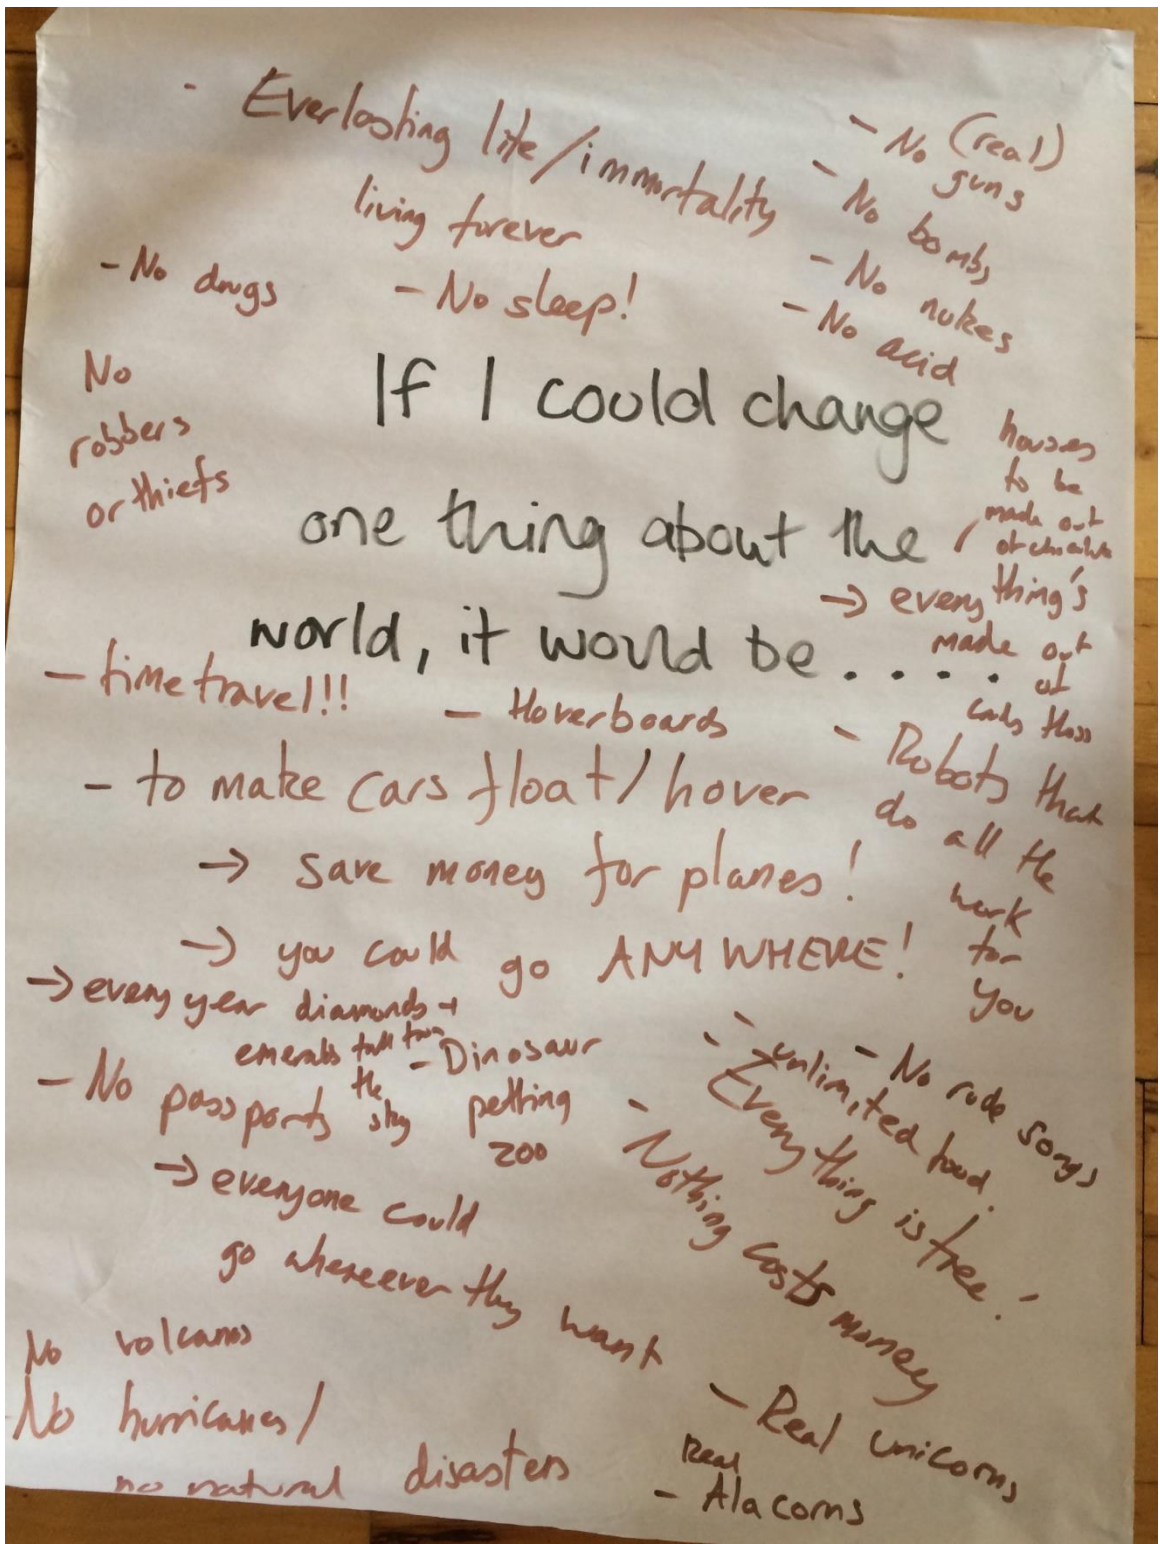 - Everlasting life/immortality
living forever
- No (real)
guns
- No bombs
- No nukes
- No acid
- No drugs
- No sleep!
No
robbers
or thiefs
If I could change
one thing about the
world, it would be.....
houses
to be
made out
of chocolate
→ everything's
made out
of
candy floss
- time travel!!!
- Hoverboards
- Robots that
do all the
work
for
you
- to make cars float/hover
→ save money for planes!
→ you could go ANYWHERE!
→ every year diamonds +
emeralds fall from
the
sky
- Dinosaur
petting
zoo
- No passports
→ everyone could
go whereever they want
- No rude songs
- unlimited food
- Everything is free!
- Nothing costs money
No volcanos
No hurricanes/
no natural disasters
- Real unicorns
Real
- Alacorns